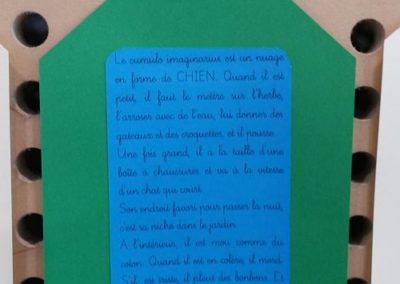 Le cumulo imaginarius est un nuage
en forme de CHIEN. Quand il est
petit, il faut le mettre sur l'herbe,
l'arroser avec de l'eau, lui donner des
gateaux et des croquettes, et il pousse.
Une fois grand, il a la taille d'une
boîte à chaussures et va à la vitesse
d'un chat qui court.
Son endroit favori pour passer la nuit,
c'est sa niche dans le jardin.
A l'intérieur, il est mou comme du
coton. Quand il est en colère, il mord.
S'il est triste, il pleut des bonbons. Et